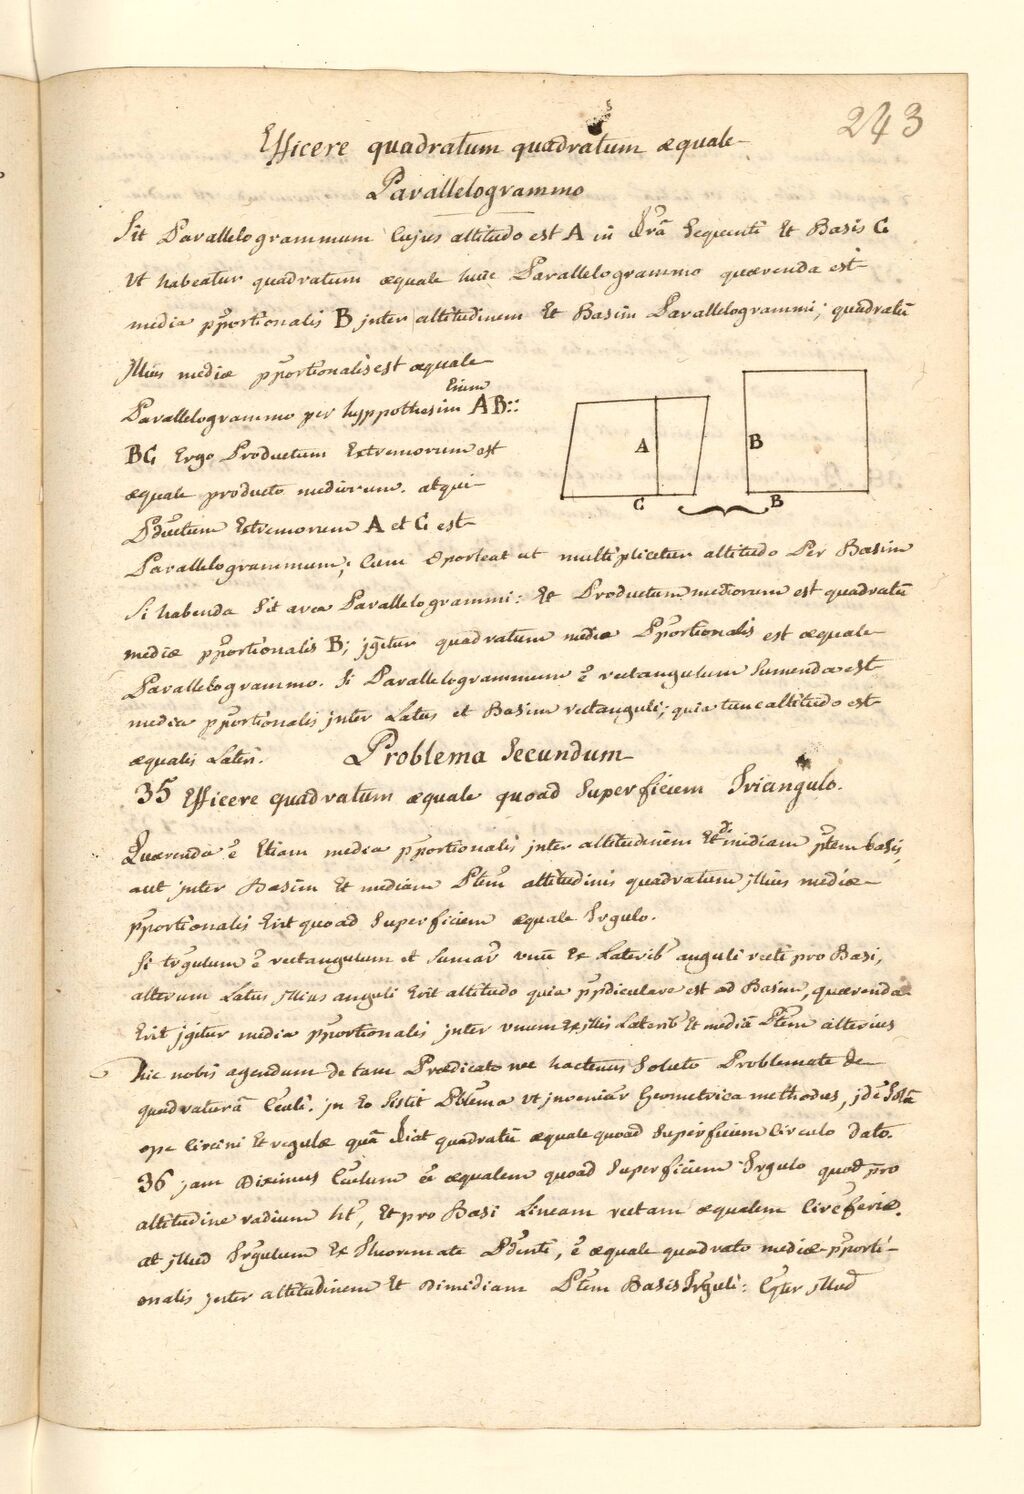 243
Efficere quadratum quadratum æquale
Parallelogrammo
Sit Parallelogrammum Cujus altitudo est A in Sequenti Et Basis C
Ut habeatur quadratum æquale huic Parallelogrammo quærenda est
media pportionalis B jnter altitudinem Et Basim Parallelogrammi; quadratũ
jllius mediæ pportionalis est æquale
Enim
Parallelogrammo per hyppothesim AB::
BC, Ergo Productum Extremorum est
æquale producto mediorum. atqui
Pductum Extremorum A et C est
Parallelogrammum; Cum Oporteat ut multiplicetur altitudo Per Basim
Si habenda Sit area Parallelogrammi: Et Productum mediorum est quadratũ
mediæ pportionalis B; jgitur quadratum mediæ Pportionalis est æquale
Parallelogrammo. Si Parallelogrammum ẽ rectangulum Sumenda est
media pportionalis jnter Latus et Basim rectanguli; quia tunc altitudo est
æqualis Lateri. Problema Secundum
35 Efficere quadratum æquale quoad Superficiem Triangulo.
Quærenda ẽ Etiam media pportionalis jnter altitudinem Et dimidiam ptem basis,
aut jnter Basim Et mediam Ptem altitudinis quadratum jllius mediæ
pportionalis Erit quoad Superficiem æquale Trgulo.
Si trgulum ẽ rectangulum et Sumar unũ Ex Laterib anguli recti pro Basi,
alterum Latus jllius anguli Erit altitudo quia ppdiculare est ad Basim, quærenda
Erit jgitur media pportionalis jnter unum Ex jllis Laterib Et mediã Ptem alterius
hic nobis agendum de tam Prædicato nec hactenus Soluto Problemate de
quadraturã Cculi. jn Eo Sistit Pblema ut jnveniar Geometrica methodus, jdẽ Solã
ope Circini Et regulæ quã fiat quadratũ æquale quoad Superficiem Circulo Dato.
36 jam Diximus Cculum ẽẽ æqualem quoad Superficiem Trgulo quod pro
altitudine radium ht, Et pro Basi Lineam rectam æqualem Circferiæ.
at jllud Trgulum Ex Theoremate Pdenti, ẽ æquale quadrato mediæ pporti-
onalis jnter altitudinem Et Dimidiam Ptem Basis Trguli: jllud
A
B
C
B